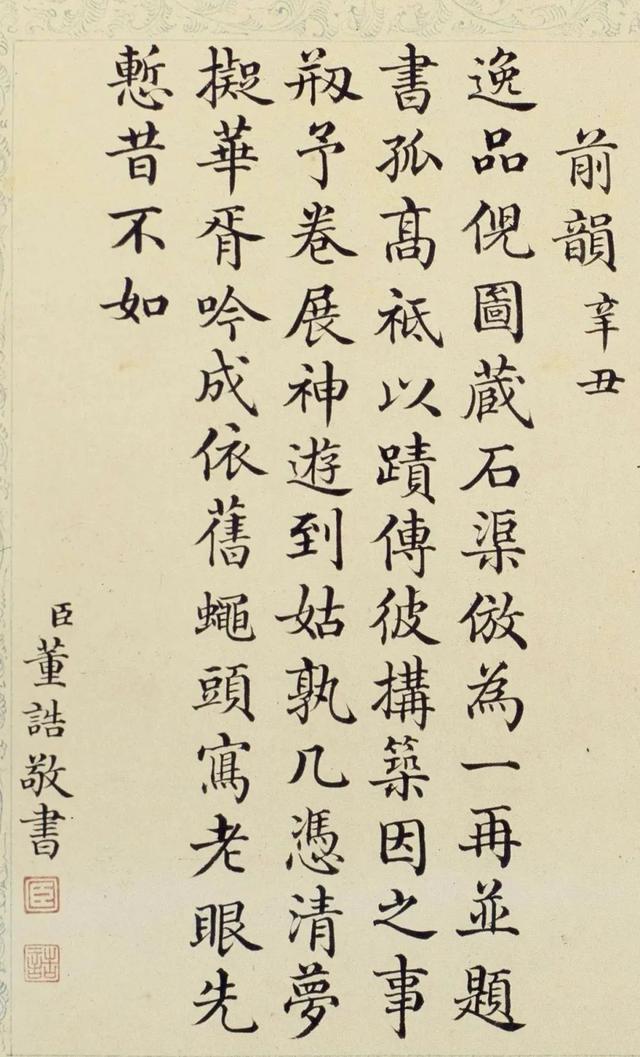 前韻 辛丑
逸品倪圖蔵石渠倣為一再並題
書孤髙祗以蹟傳彼構築因之事
剏予卷展神遊到姑孰几憑清夢
擬華胥吟成依舊蠅頭寫老眼先
慙昔不如
臣董誥敬書
臣
誥